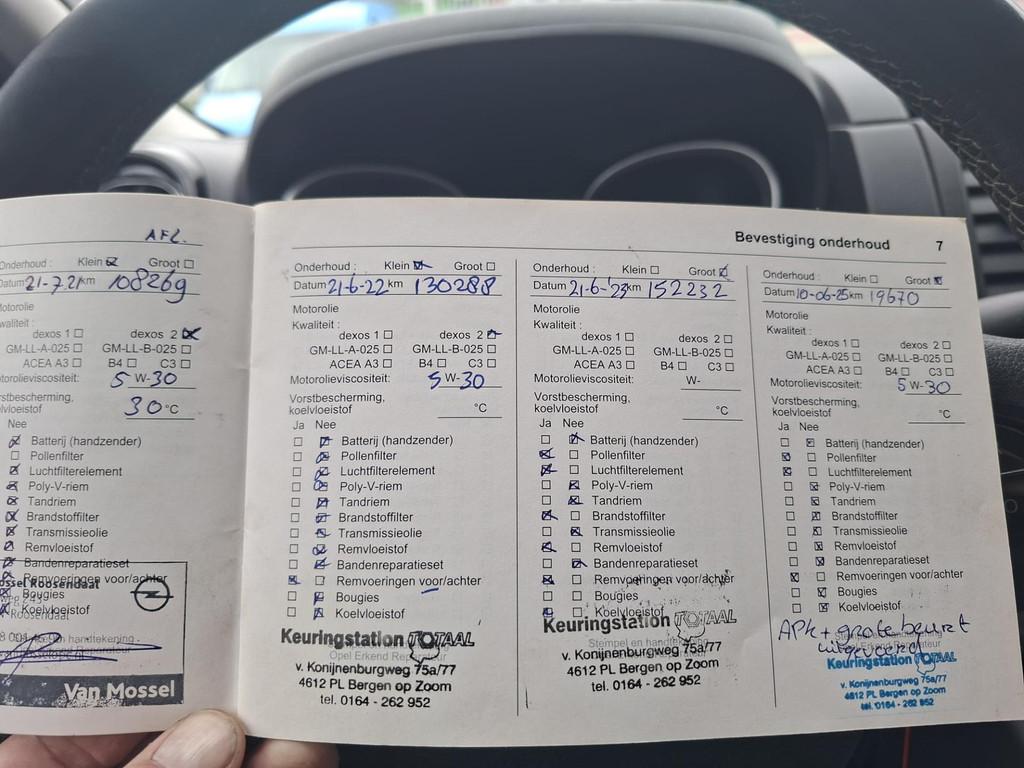 AFL.
Onderhoud : Klein ☒ Groot ☐
Datum 21-7-21 km 108269
Motorolie
Kwaliteit :
dexos 1 ☐ dexos 2 ☒
GM-LL-A-025 ☐ GM-LL-B-025 ☐
ACEA A3 ☐ B4 ☐ C3 ☐
Motorolieviscositeit: 5 W-30
Vorstbescherming,
koelvloeistof 30 °C
Nee
☒ Batterij (handzender)
☐ Pollenfilter
☒ Luchtfilterelement
☒ Poly-V-riem
☒ Tandriem
☒ Brandstoffilter
☒ Transmissieolie
☒ Remvloeistof
☒ Bandenreparatieset
☒ Remvoeringen voor/achter
☒ Bougies
☒ Koelvloeistof
Mossel Roosendaal
Roosendaal
Van Mossel
Bevestiging onderhoud 7
Onderhoud : Klein ☒ Groot ☐
Datum 21-6-22 km 130288
Motorolie
Kwaliteit :
dexos 1 ☐ dexos 2 ☒
GM-LL-A-025 ☐ GM-LL-B-025 ☐
ACEA A3 ☐ B4 ☐ C3 ☐
Motorolieviscositeit: 5 W-30
Vorstbescherming,
koelvloeistof °C
Ja Nee
☐ ☒ Batterij (handzender)
☐ ☒ Pollenfilter
☐ ☒ Luchtfilterelement
☐ ☒ Poly-V-riem
☐ ☒ Tandriem
☐ ☒ Brandstoffilter
☐ ☒ Transmissieolie
☐ ☒ Remvloeistof
☐ ☒ Bandenreparatieset
☒ ☐ Remvoeringen voor/achter
☐ ☒ Bougies
☐ ☒ Koelvloeistof
Keuringstation TOTAAL
Stempel en handtekening
Opel Erkend Reparateur
v. Konijnenburgweg 75a/77
4612 PL Bergen op Zoom
tel. 0164 - 262 952
Onderhoud : Klein ☐ Groot ☒
Datum 21-6-'23 km 152232
Motorolie
Kwaliteit :
dexos 1 ☐ dexos 2 ☐
GM-LL-A-025 ☐ GM-LL-B-025 ☐
ACEA A3 ☐ B4 ☐ C3 ☐
Motorolieviscositeit: W-
Vorstbescherming,
koelvloeistof °C
Ja Nee
☐ ☒ Batterij (handzender)
☒ ☐ Pollenfilter
☒ ☐ Luchtfilterelement
☐ ☒ Poly-V-riem
☐ ☒ Tandriem
☒ ☐ Brandstoffilter
☐ ☒ Transmissieolie
☒ ☐ Remvloeistof
☐ ☒ Bandenreparatieset
☒ ☐ Remvoeringen voor/achter
☐ ☐ Bougies
☒ ☐ Koelvloeistof
Keuringstation TOTAAL
Stempel en handtekening
v. Konijnenburgweg 75a/77
4612 PL Bergen op Zoom
tel. 0164 - 262 952
Onderhoud : Klein ☐ Groot ☒
Datum 10-06-25 km 19670
Motorolie
Kwaliteit :
dexos 1 ☐ dexos 2 ☐
GM-LL-A-025 ☐ GM-LL-B-025 ☐
ACEA A3 ☐ B4 ☐ C3 ☐
Motorolieviscositeit: 5 W-30
Vorstbescherming,
koelvloeistof °C
Ja Nee
☐ ☒ Batterij (handzender)
☒ ☐ Pollenfilter
☒ ☐ Luchtfilterelement
☐ ☒ Poly-V-riem
☐ ☒ Tandriem
☐ ☒ Brandstoffilter
☐ ☒ Transmissieolie
☐ ☒ Remvloeistof
☐ ☒ Bandenreparatieset
☒ ☐ Remvoeringen voor/achter
☐ ☒ Bougies
☐ ☒ Koelvloeistof
APK + grote beurt
uitgevoerd
Keuringstation TOTAAL
v. Konijnenburgweg 75a/77
4612 PL Bergen op Zoom
tel. 0164 - 262 952